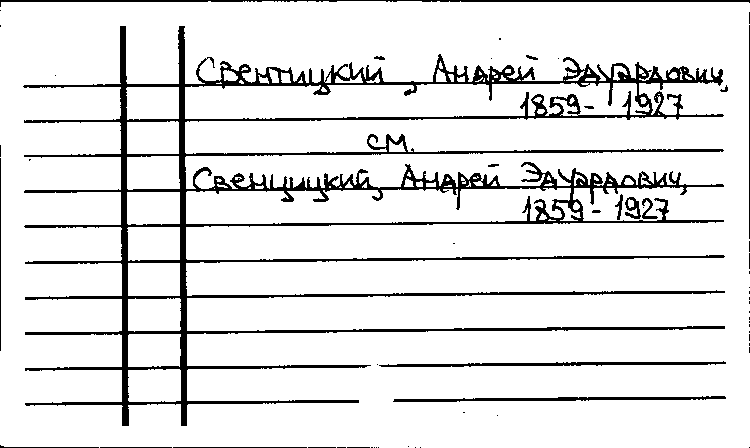 Свентицкий, Андрей Эдуардович,
1859- 1927
см.
Свенцицкий, Андрей Эдуардович,
1859- 1927